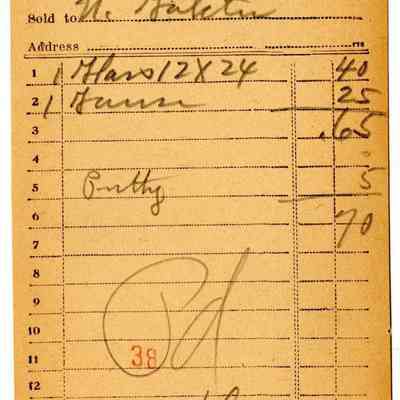 Sold to N.
Address
1 1 Glass 12 X 24 40
2 1 25
3 .65
4
5 Putty 5
6 70
7
8
9
10 Pd
11 38
12